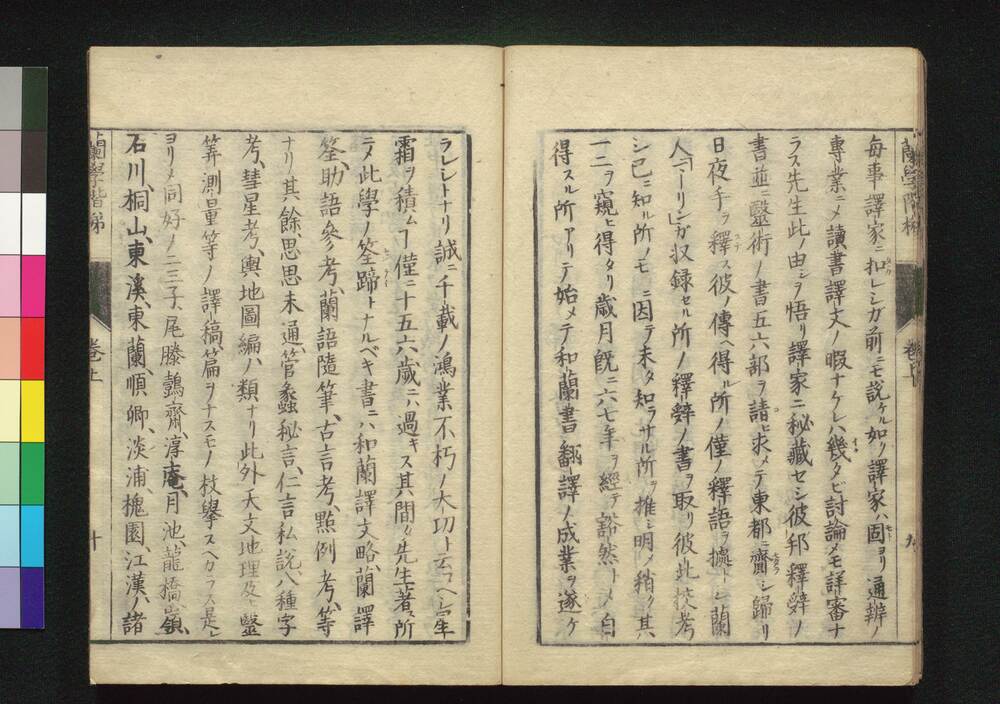 毎事譯家ニ扣レシガ前ニモ説ケル如ク譯家ハ固ヨリ通辨ノ
専業ニメ讀書譯文ノ暇ナケレハ幾タビ討論メモ詳審ナ
ラス先生此ノ由ヲ悟リ譯家ニ秘藏セシ彼邦釋辞ノ
書並ニ毉術ノ書五六部ヲ請ヒ求メテ東都ニ齎シ歸リ
日夜手ヲ釋ス彼ノ傳ヘ得ル所ノ僅ノ釋語ヲ據トシ蘭
人「マーリン」ガ収録セル所ノ釋辞ノ書ヲ取リ彼此挍考
シ已ニ知ル所ノモノニ因テ未タ知ラサル所ヲ推シ明メ稍ク其
一二ヲ窺ヒ得タリ歳月旣ニ六七年ヲ經テ豁然トメ自
得スル所アリテ始メテ和蘭書翻譯ノ成業ヲ遂ケ
蘭學階梯 卷上 九
ラレシトナリ誠ニ千載ノ鴻業不朽ノ大功ト云フヘシ星
霜ヲ積ムヿ僅ニ十五六歳ニハ過キス其間タ先生著ス所
ニメ此學ノ筌蹄トナルベキ書ニハ和蘭譯文略、蘭譯
筌、助語參考、蘭語隨筆、古言考、點例考、等
ナリ其餘思思未通、管蠡秘言、仁言私説、八種字
考、彗星考、輿地圖編ハ類ナリ此外天文地理及ヒ毉
筭測量等ノ譯稿篇ヲナスモノ枚擧スヘカラス是レ
ヨリメ同好ノ二三子、尾滕鷧齋、淳庵、月池、龍橋、嶺、
石川、桐山、東溪、東蘭、順卿、淡浦、槐園、江漢ノ諸
蘭學階梯 卷上 十